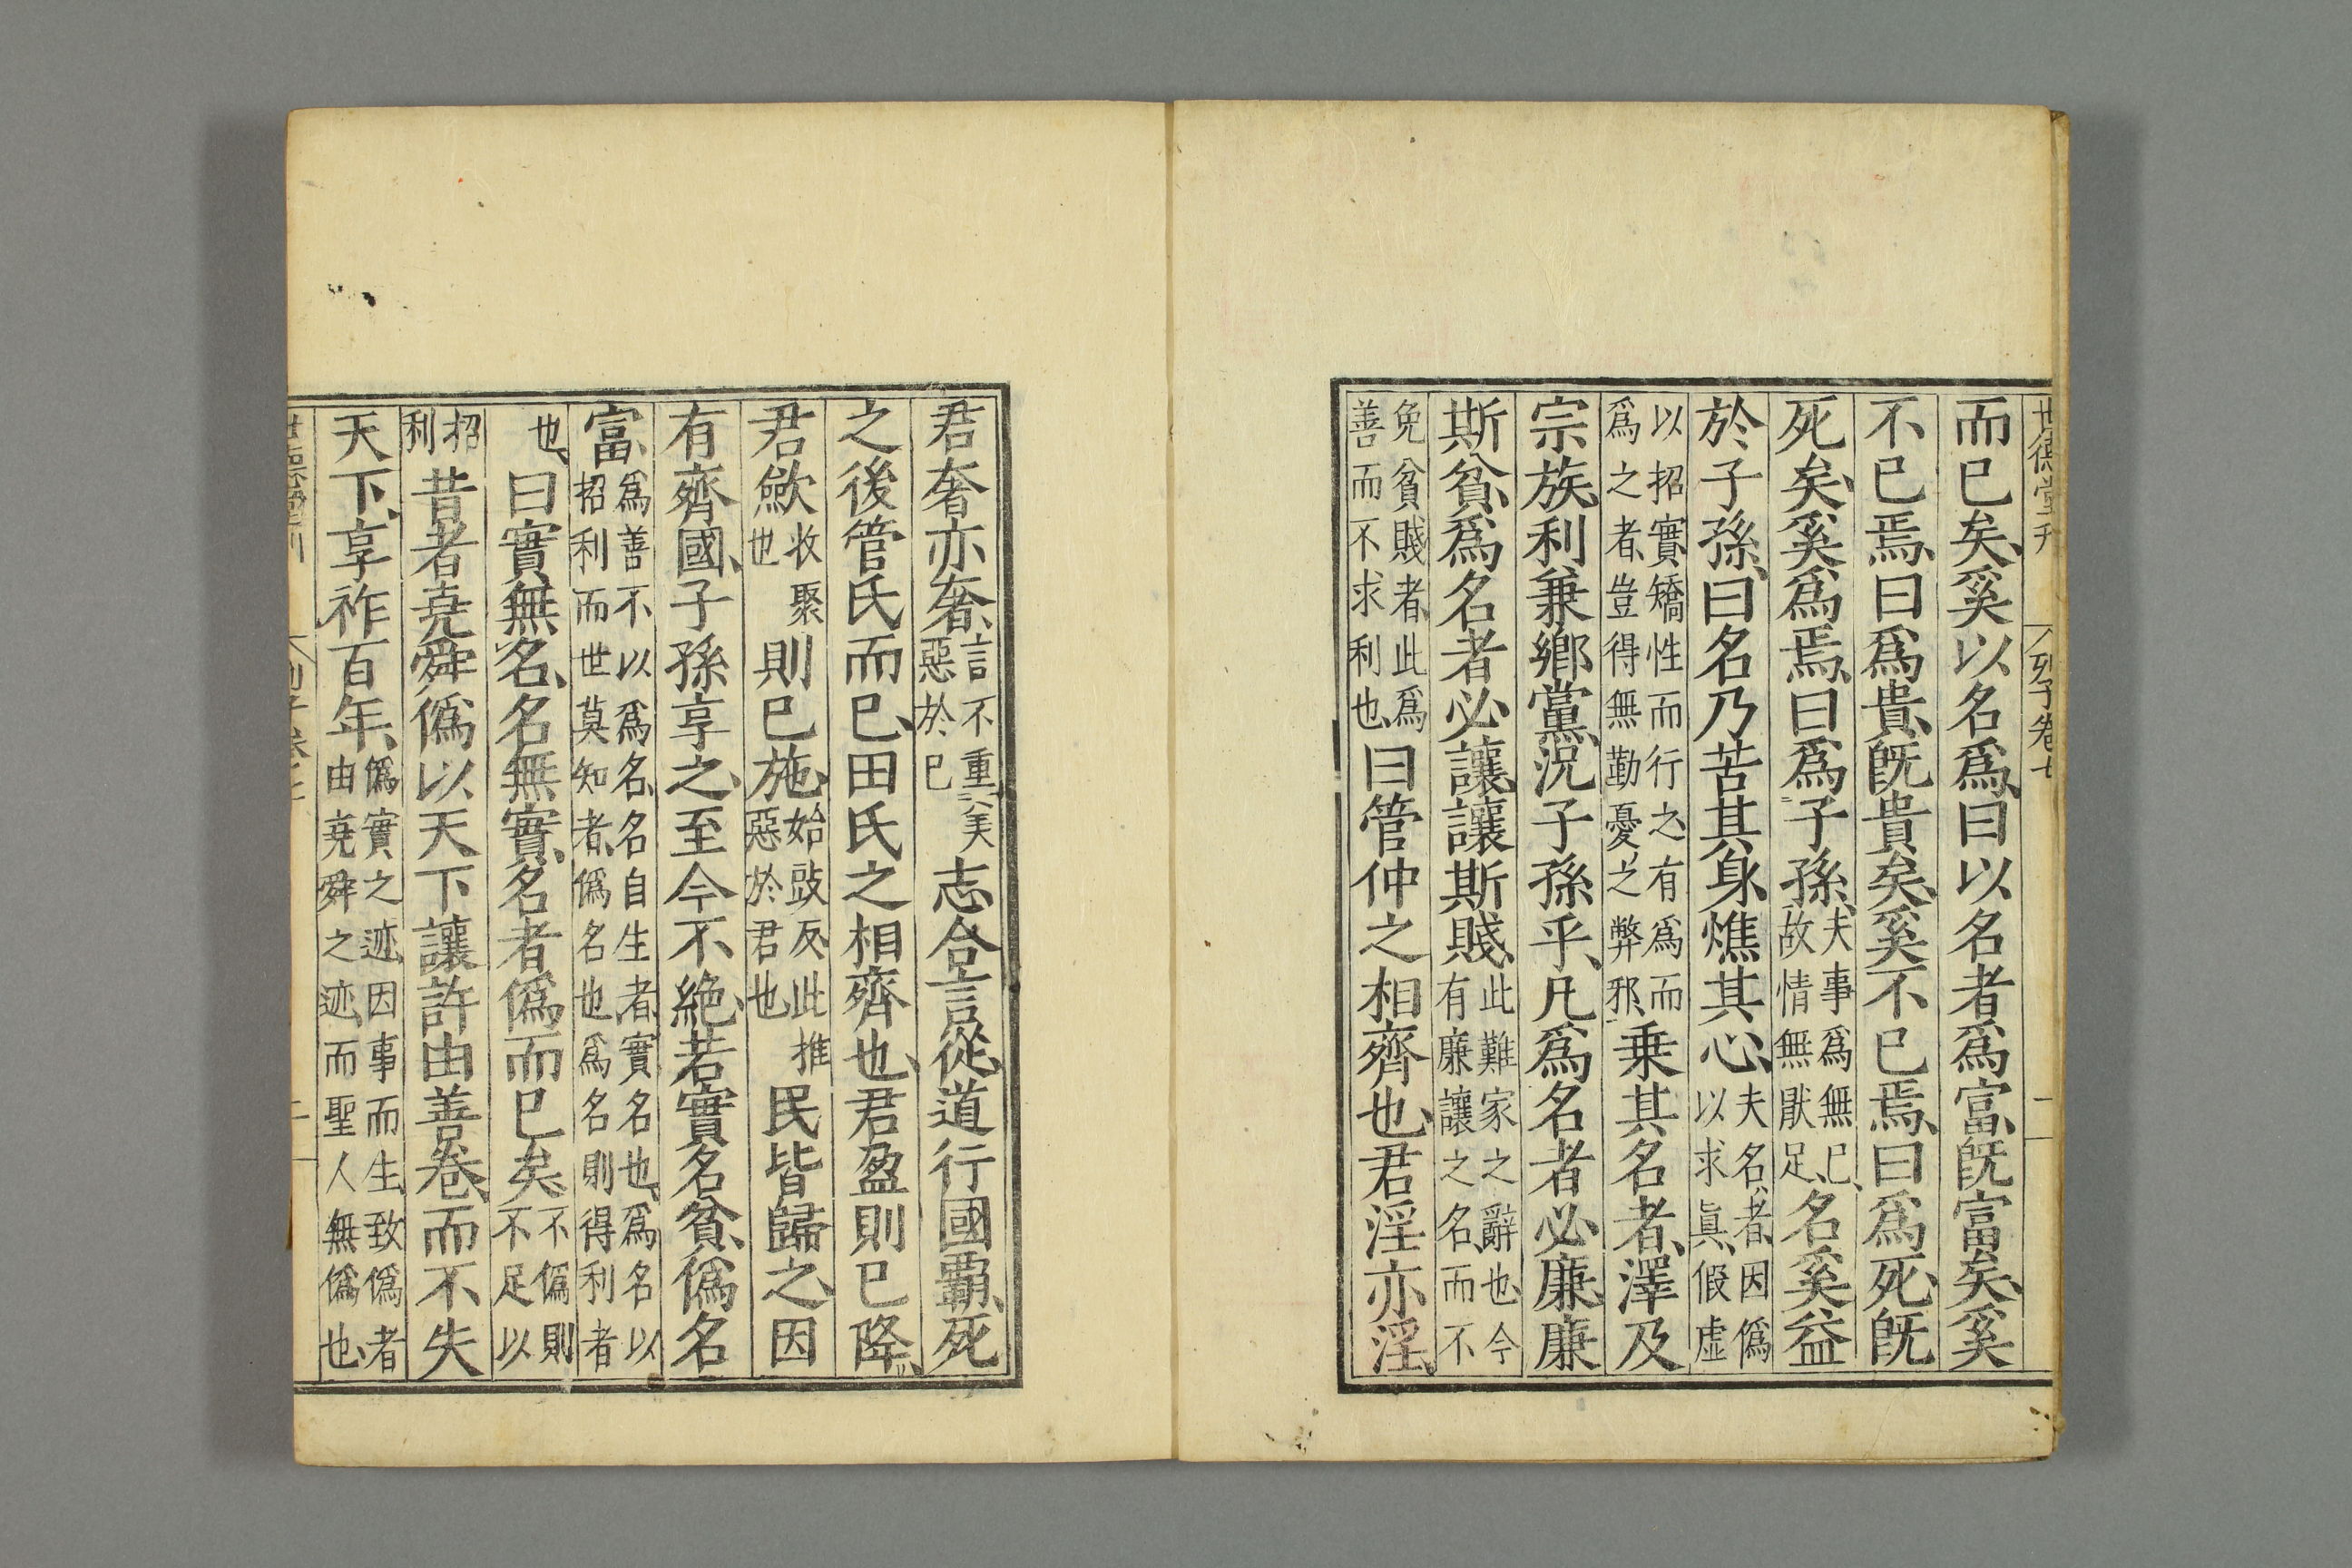 世德堂刊 列子卷七 一
而已矣奚以名爲曰以名者爲富既富矣奚
不已焉曰爲貴既貴矣奚不已焉曰爲死既
死矣奚爲焉曰爲子孫夫事爲無已故情無厭足名奚益
於子孫曰名乃苦其身燋其心夫名者因僞以求眞假虛
以招實矯性而行之有爲而爲之者豈得無勤憂之弊邪乗其名者澤及
宗族利兼鄉黨況子孫乎凡爲名者必廉廉
斯貧爲名者必讓讓斯賤此難家之辭也今有廉讓之名而不
免貧賤者此爲善而不求利也曰管仲之相齊也君淫亦淫
君奢亦奢言不重美惡於已志合言從道行國霸死
之後管氏而已田氏之相齊也君盈則已降
君歛收聚也則已施始豉反此推惡於君也民皆歸之因
有齊國子孫享之至今不絶若實名貧僞名
富爲善不以爲名名自生者實名也爲名以招利而世莫知者僞名也爲名則得利者
也曰實無名名無實名者僞而已矣不僞則不足以
招利昔者堯舜僞以天下讓許由善卷而不失
天下享祚百年僞實之迹因事而生致僞者由堯舜之迹而聖人無僞也